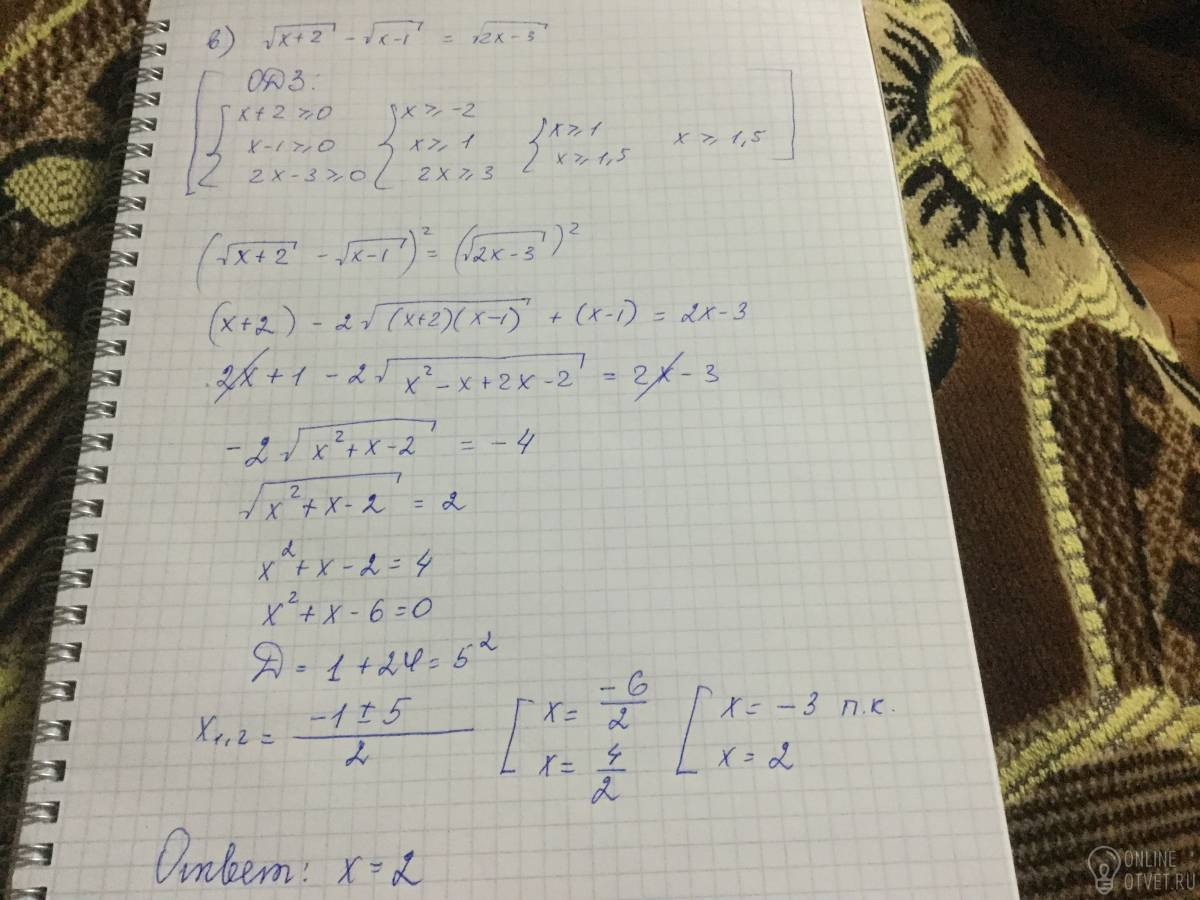 в) √(x+2) - √(x-1) = √(2x-3)
ОДЗ:
x+2 ≥ 0 x ≥ -2
x-1 ≥ 0 x ≥ 1 x ≥ 1 x ≥ 1,5
2x-3 ≥ 0 2x ≥ 3 x ≥ 1,5
(√(x+2) - √(x-1))² = (√(2x-3))²
(x+2) - 2√((x+2)(x-1)) + (x-1) = 2x-3
2x + 1 - 2√(x² - x + 2x - 2) = 2x - 3
-2√(x² + x - 2) = -4
√(x² + x - 2) = 2
x² + x - 2 = 4
x² + x - 6 = 0
Д = 1 + 24 = 5²
x₁,₂ = (-1 ± 5)/2 [ x = -6/2 [ x = -3 п.к.
x = 4/2 x = 2
Ответ: x = 2
ONLINE
OTVET.RU